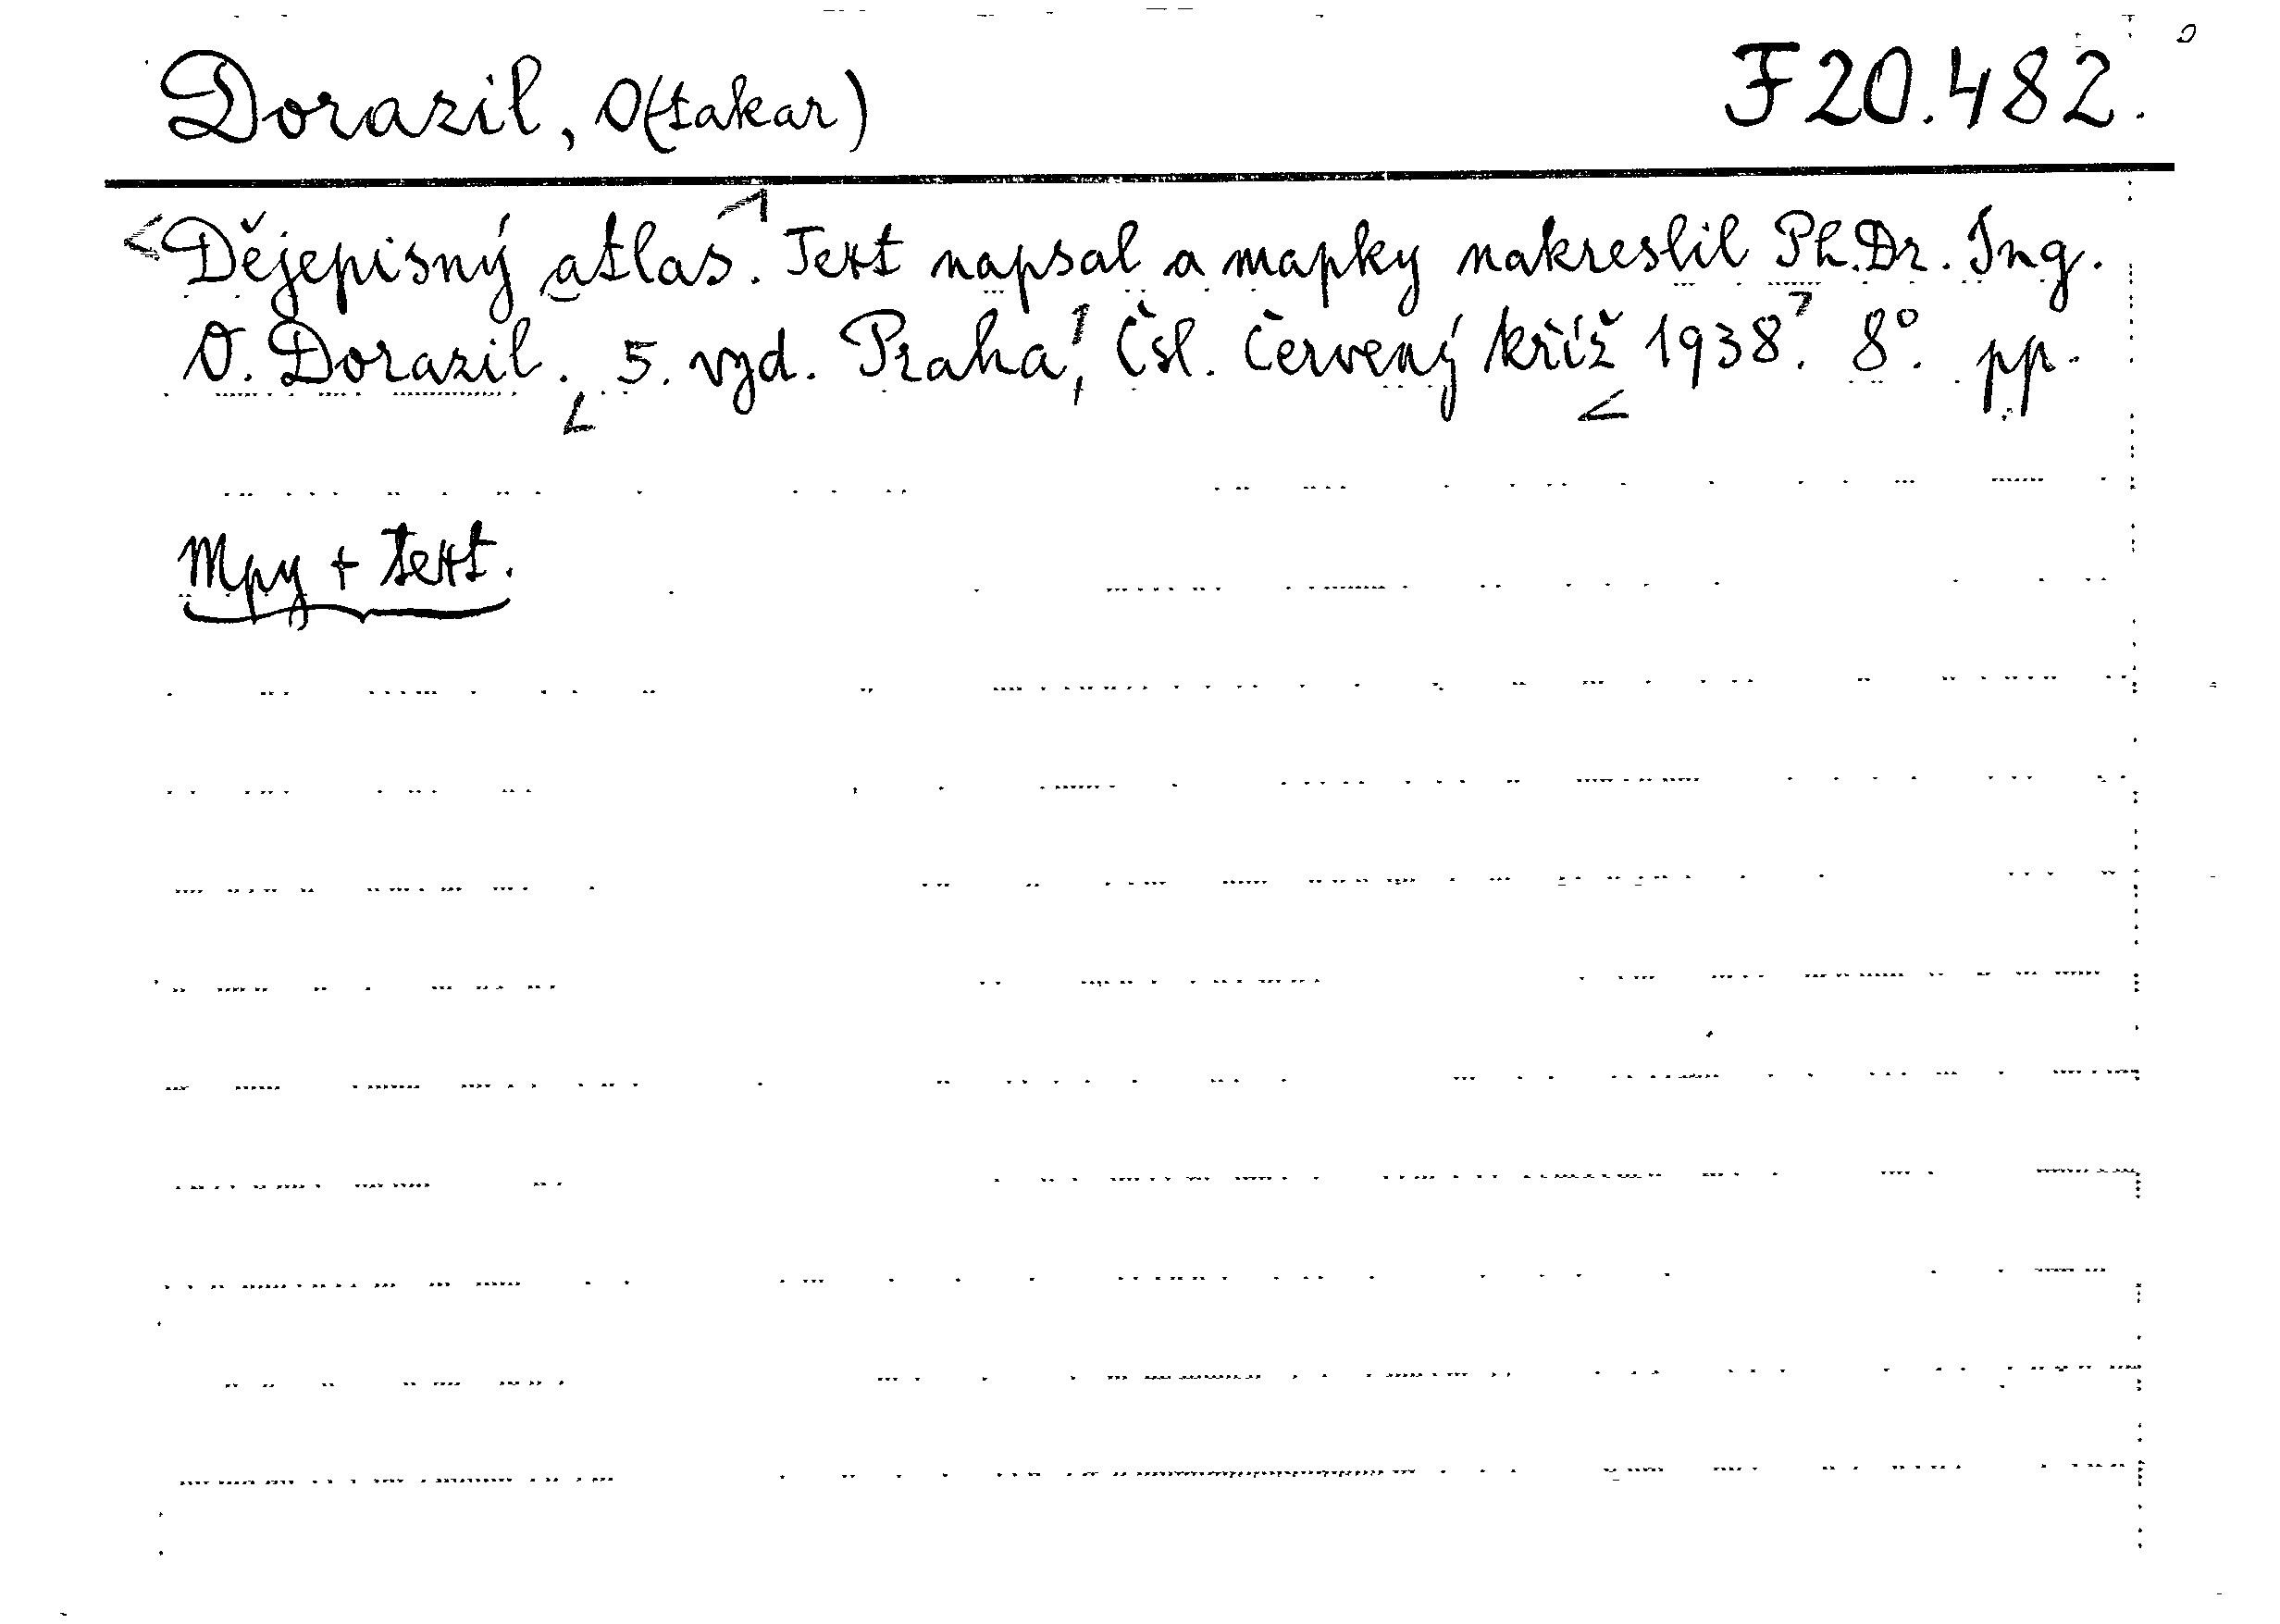 Dorazil, O(takar)
F 20.482.
Dějepisný atlas. Text napsal a mapky nakreslil Ph.Dr. Ing.
O. Dorazil. 5. vyd. Praha, Čsl. Červený kříž 1938. 8°. pp.
Mpy + text.